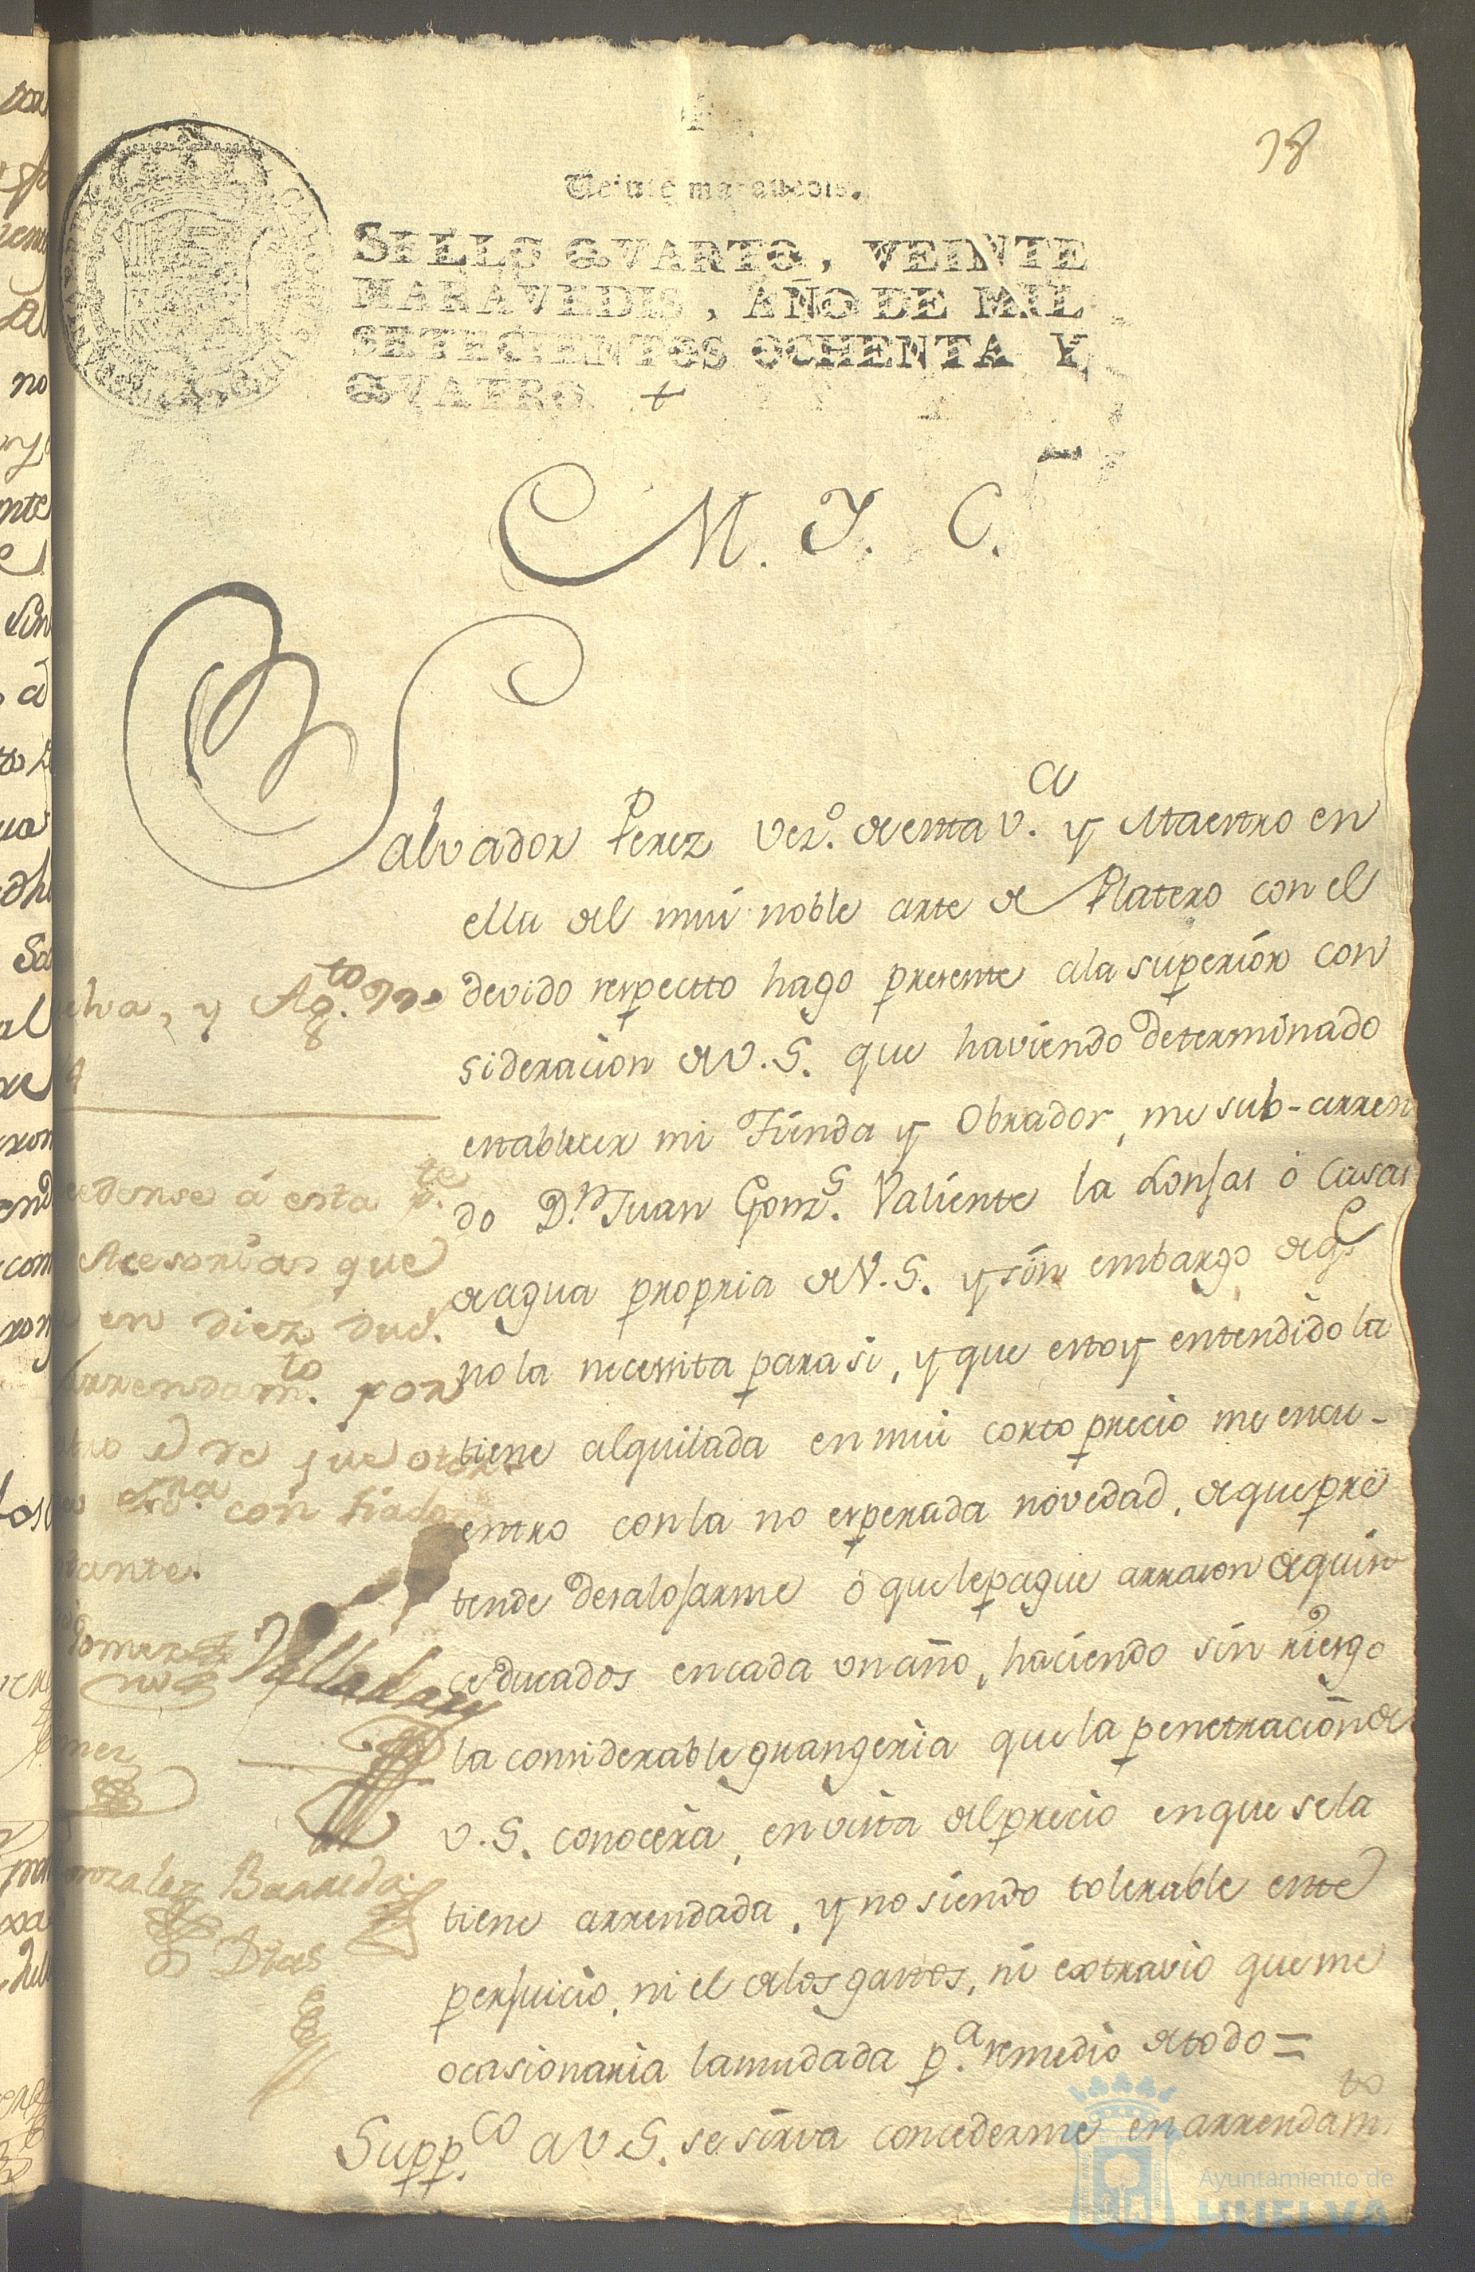 18
Veinte maravedis.
SELLO QVARTO, VEINTE
MARAVEDIS, AÑO DE MIL
SETECIENTOS OCHENTA Y
QVATRO.
M. Y. C.
Salvador Perez vez.º de esta v.ª y Maestro en
ella del mui noble arte de Platero con el
devido respectto hago presente ala superiòr con
sideracion de V. S. que haviendo determinado
establecer mi Tienda y Obrador, me sub-arren
do D.n Juan Gonz.s Valiente la Lonjas ò Casas
de agua propria de V. S. y sin embargo de q.e
no la necessita para si, y que estoy entendido la
tiene alquilada en mui corto precio me encu-
entro con la no esperada novedad, de que pre
tende desalojarme ò que le pague arrazon de quin
ce ducados en cada un año, haciendo sin riesgo
la considerable grangeria que la penetraciòn de
V. S. conocerà, en vista del precio en que se la
tiene arrendada, y no siendo tolerable este
perjuicio, ni el de los gastos, ni extravio que me
ocasionaria la mudada p.ª remedio de todo =
Supp.co a V. S. se sirva concederme en arrendam.to
elva, y Ag.to
4
cedense á esta p.te
Acesorias que
en diez duc.s
Arrendam.to por
con fiado
Gomez
Villa
mez
Gonzalez Barreda
Dias
Ayuntamiento de
HUELVA